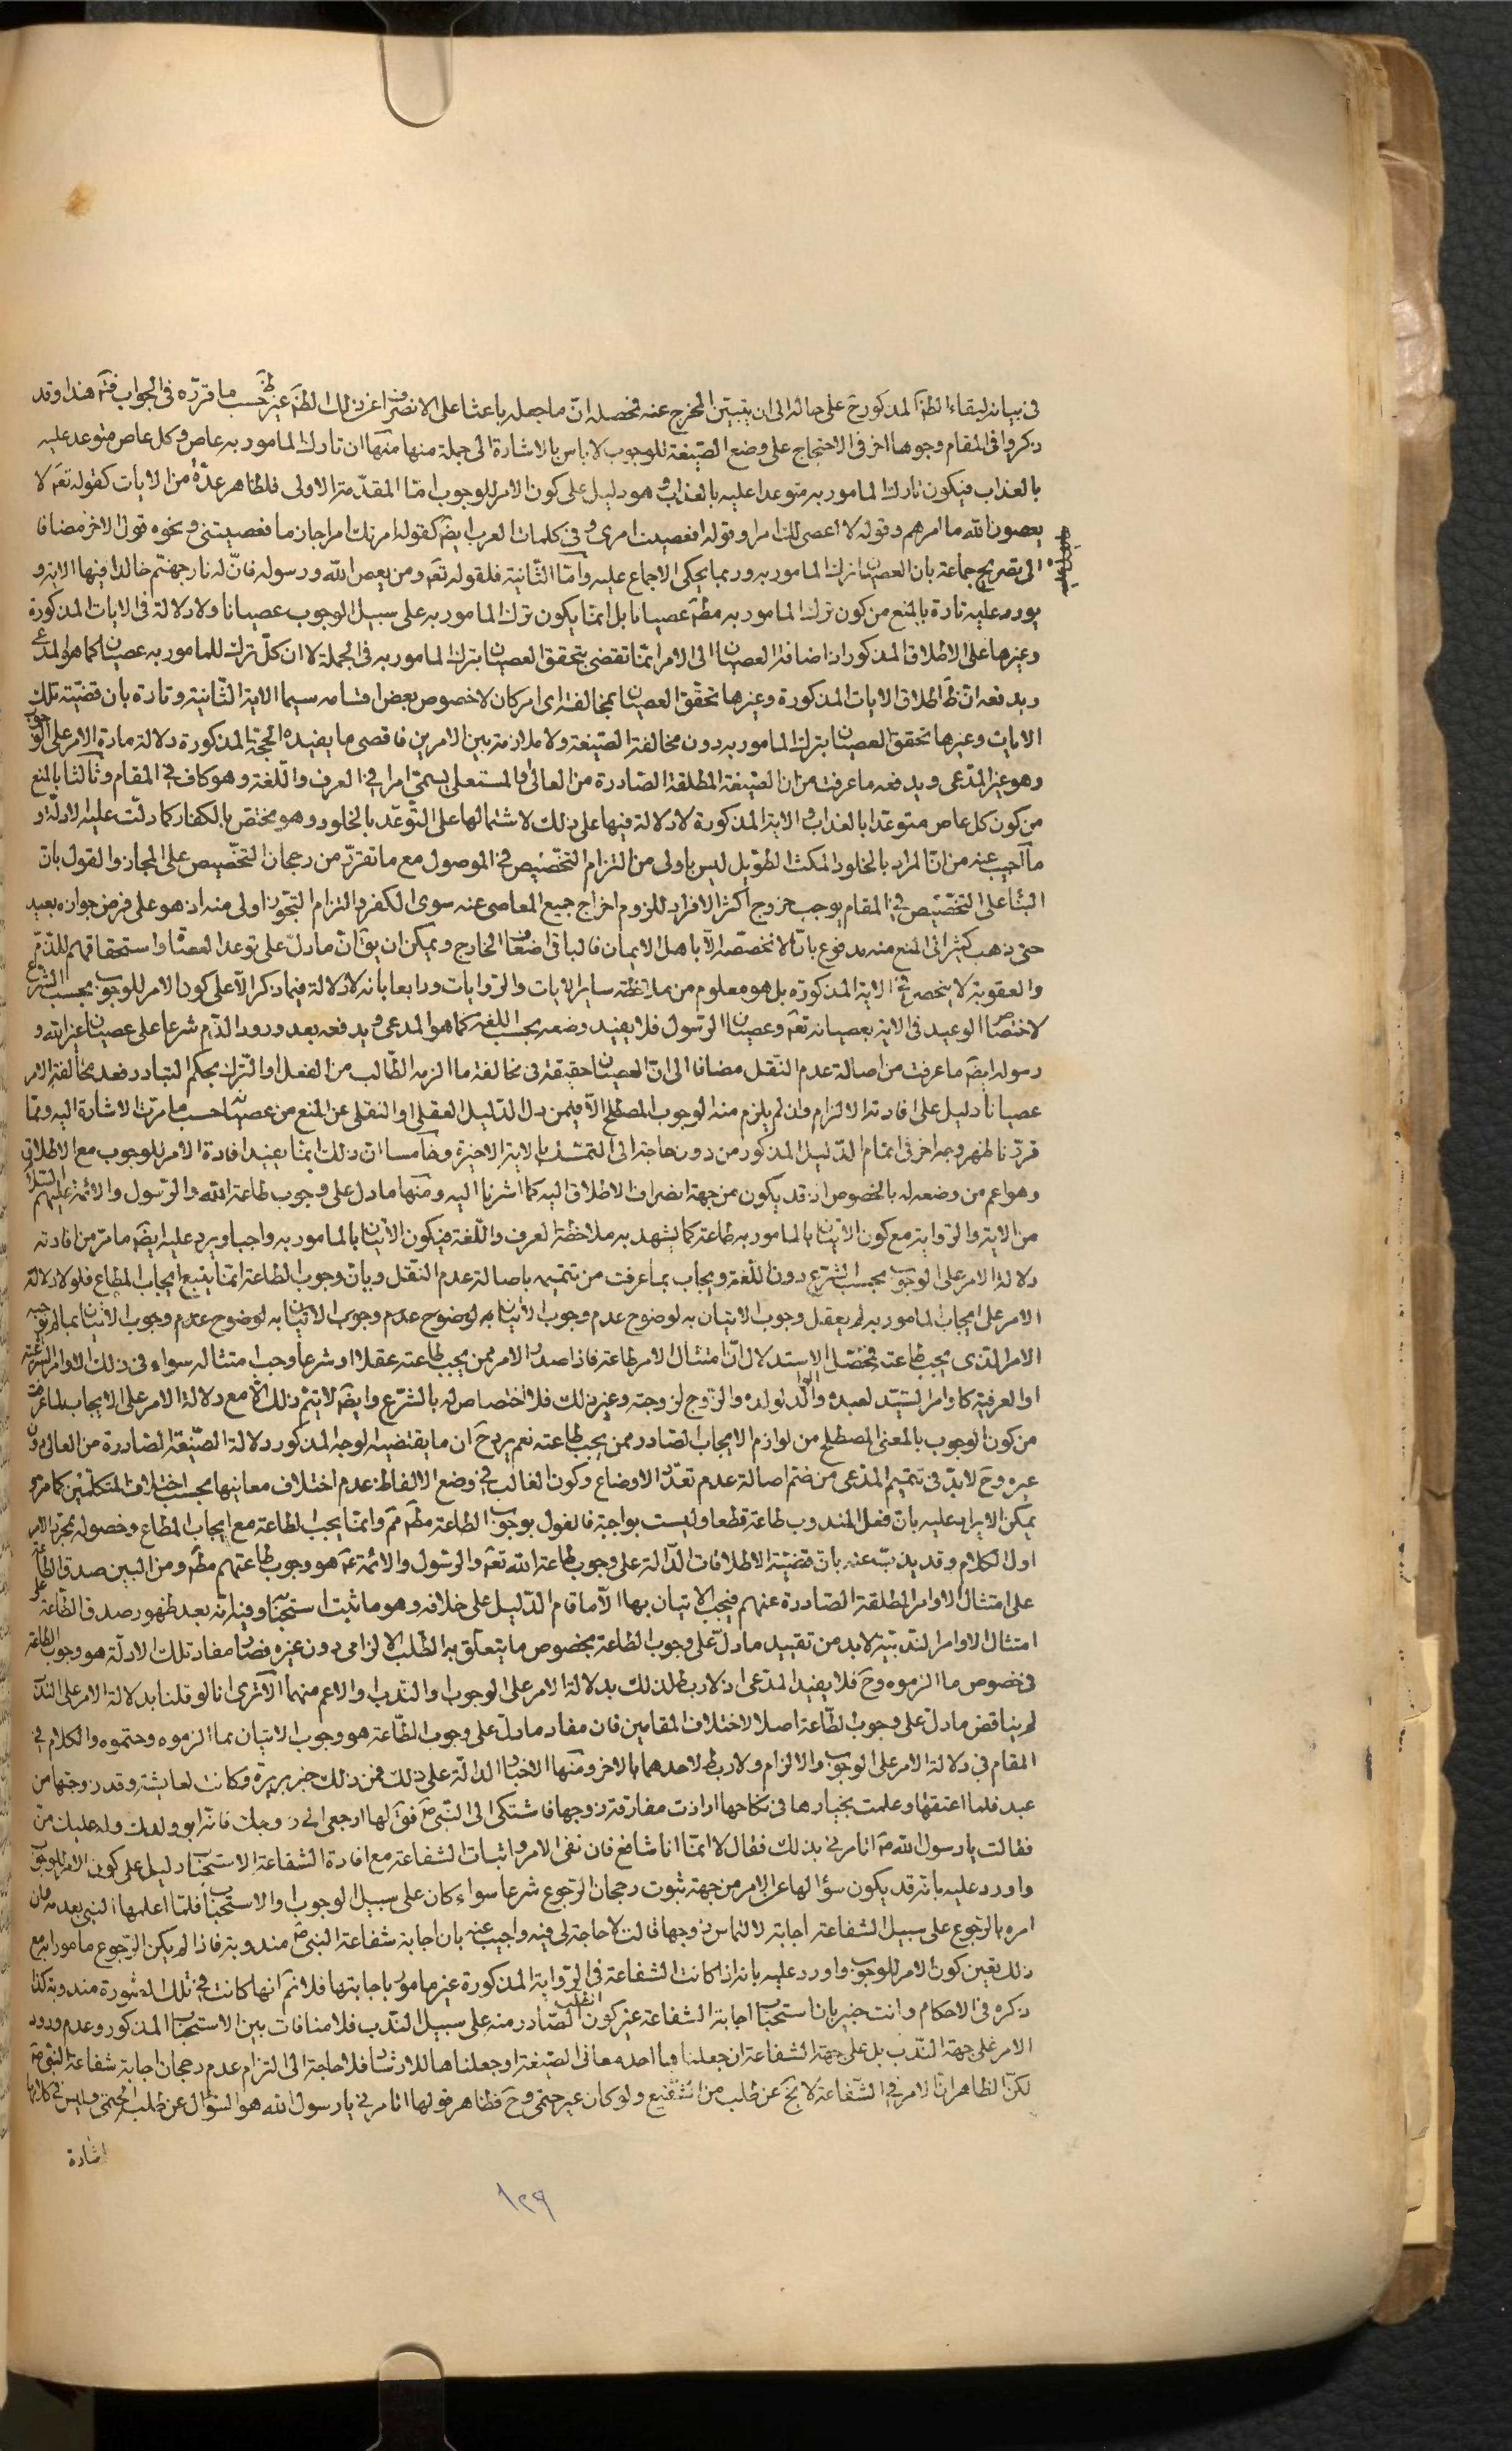 في بيانه لبقاء الظن المذكور ح على حاله الى ان يتبين المخرج عنه فحصله ان ما جعله باعثا على الانصراف عن ذلك الظن غير ظ حسب ما قرره في الجواب فتم هذا وقد
ذكروا في المقام وجوها اخر في الاحتجاج على وضع الصيغة للوجوب لا باس بالاشارة الى جملة منها منها ان تارك المامور به عاص وكل عاص متوعد عليه
بالعذاب فيكون تارك المامور به متوعدا عليه بالعذاب وهو دليل على كون الامر للوجوب اما المقدمة الاولى فلظاهر عدة من الايات كقوله تعم لا
يعصون الله ما امرهم وقوله لا اعصى لك امرا وقوله افعصيت امري وفي كلمات العرب ايضم كقوله امرتك امرا جازما فعصيتني ونحوه قول الاخر مضافا
الى تصريح جماعة بان العصيان ترك المامور به وربما يحكى الاجماع عليه واما الثانية فلقوله تعم ومن يعص الله ورسوله فان له نار جهنم خالدا فيها الاية و
يورد عليه تارة بالمنع من كون ترك المامور به مطم عصيانا بل انما يكون ترك المامور به على سبيل الوجوب عصيانا ولا دلالة في الايات المذكورة
وغيرها على الاطلاق المذكور اذ اضافة العصيان الى الامر انما تقضى بتحقق العصيان بترك المامور به في الجملة لا ان كل ترك للمامور به عصيان كما هو المدعى
ويدفعه ان ظ اطلاق الايات المذكورة وغيرها تحقق العصيان بمخالفة اي امر كان لا خصوص بعض اقسامه سيما الاية الثانية وتارة بان قضية تلك
الايات وغيرها تحقق العصيان بترك المامور به دون مخالفة الصيغة ولا ملازمة بين الامرين فاقصى ما يفيده الحجة المذكورة دلالة مادة الامر على الوجوب
وهو غير المدعى ويدفعه ما عرفت من ان الصيغة المطلقة الصادرة من العالى او المستعلى يسمى امرا في العرف واللغة وهو كاف في المقام وثالثا بالمنع
من كون كل عاص متوعدا بالعذاب والاية المذكورة لا دلالة فيها على ذلك لاشتمالها على التوعد بالخلود وهو مختص بالكفار كما دلت عليه الادلة و
ما اجيب عنه من ان المراد بالخلود المكث الطويل ليس باولى من التزام التخصيص في الموصول مع ما تقرر من رجحان التخصيص على المجاز والقول بان
البناء على التخصيص في المقام يوجب خروج اكثر الافراد للزوم اخراج جميع المعاصى عنه سوى الكفر والتزام التجوز اولى منه اذ هو على فرض جوازه بعيد
حتى ذهب كثير الى المنع منه مدفوع بان لا تخصصه الا باهل الايمان فالباقى اضعاف الخارج ويمكن ان يق ان ما دل على توعد العصاة واستحقاقهم للذم
والعقوبة لا ينحصر في الاية المذكورة بل هو معلوم من ملاحظة ساير الايات والروايات ورابعا بانه لا دلالة فيما ذكر الا على كون الامر للوجوب بحسب الشرع
لاختصاص الوعيد في الاية بعصيانه تعم وعصيان الرسول فلا يفيد وضعه بحسب اللغة كما هو المدعى ويدفعه بعد ورود الذم شرعا على عصيان غير الله و
رسوله ايضم ما عرفت من اصالة عدم النقل مضافا الى ان العصيان حقيقة في مخالفة ما الزمه الطالب من الفعل او الترك بحكم التبادر فعد مخالفة الامر
عصيانا دليل على افادته الالزام وان لم يلزم منه الوجوب المصطلح الا فيمن دل الدليل العقلى او النقلى عن المنع من عصيانه حسب ما مرت الاشارة اليه ومما
قررنا ظهر وجه اخر في اتمام الدليل المذكور من دون حاجة الى التمسك بالاية الاخيرة وخامسا ان ذلك انما يفيد افادة الامر للوجوب مع الاطلاق
وهو اعم من وضعه له بالخصوص اذ قد يكون من جهة انصراف الاطلاق اليه كما اشرنا اليه ومنها ما دل على وجوب طاعة الله والرسول والائمة عليهم السلام
من الاية والرواية مع كون الاتيان بالمامور به طاعة كما يشهد به ملاحظة العرف واللغة فيكون الاتيان بالمامور به واجبا ويرد عليه ايضم ما مر من افادته
دلالة الامر على الوجوب بحسب الشرع دون اللغة ويجاب بما عرفت من تتميمه باصالة عدم النقل وبان وجوب الطاعة انما يتبع ايجاب المطاع فلولا دلالة
الامر على ايجاب المامور به لم يعقل وجوب الاتيان به لوضوح عدم وجوب الاتيان به لوضوح عدم وجوب الاتيان به لوضوح عدم وجوب الاتيان بما لم يوجبه
الامر الذي يجب طاعته فمحصل الاستدلال ان امتثال الامر طاعة فاذا صدر الامر ممن يجب طاعته عقلا او شرعا وجب امتثاله سواء في ذلك الاوامر الشرعية
او العرفية كاوامر السيد لعبده والوالد لولده والزوج لزوجته وغير ذلك فلا اختصاص له بالشرع وايضم لا يتم ذلك الا مع دلالة الامر على الايجاب لما عرفت
من كون الوجوب بالمعنى المصطلح من لوازم الايجاب الصادر ممن يجب طاعته نعم يرد ح ان ما يقتضيه الوجه المذكور دلالة الصيغة الصادرة من العالى دون
غيره وح لا بد في تتميم المدعى من ضم اصالة عدم تعدد الاوضاع وكون الغالب في وضع الالفاظ عدم اختلاف معانيها بحسب اختلاف المتكلمين كما مر و
يمكن الايراد عليه بان فعل المندوب طاعة قطعا وليست بواجبة فالقول بوجوب الطاعة مطم مم وانما يجب الطاعة مع ايجاب المطاع وحصوله بمجرد الامر
اول الكلام وقد يذب عنه بان قضية الاطلاقات الدالة على وجوب طاعة الله تعم والرسول والائمة عم هو وجوب طاعتهم مطم ومن البين صدق الطاعة
على امتثال الاوامر المطلقة الصادرة عنهم فيجب الاتيان بها الا ما قام الدليل على خلافه وهو ما ثبت استحبابه وفيه انه بعد ظهور صدق الطاعة على
امتثال الاوامر الندبية لا بد من تقييد ما دل على وجوب الطاعة بخصوص ما يتعلق به الطلب الالزامى دون غيره فصار مفاد تلك الادلة هو وجوب الطاعة
في خصوص ما الزموه وح فلا يفيد المدعى اذ لا ربط لذلك بدلالة الامر على الوجوب او الندب او الاعم منهما الا ترى انا لو قلنا بدلالة الامر على الندب
لم يناقض ما دل على وجوب الطاعة اصلا لاختلاف المقامين فان مفاد ما دل على وجوب الطاعة هو وجوب الاتيان بما الزموه وحتموه والكلام في
المقام في دلالة الامر على الوجوب والالزام ولا ربط لاحدهما بالاخر ومنها الاخبار الدالة على ذلك فمن ذلك خبر بريرة وكانت لعايشة وقد زوجها من
عبد فلما اعتقها وعلمت بخيارها في نكاحها ارادت مفارقة زوجها فاشتكى الى النبي ص فق لها ارجعى الى زوجك فانه ابو ولدك وله عليك من
فقالت يا رسول الله ص اتامرني بذلك فقال لا انما انا شافع فان نفى الامر واثبات الشفاعة مع افادة الشفاعة الاستحباب دليل على كون الامر للوجوب
واورد عليه بانه قد يكون سؤالها عن الامر من جهة ثبوت رجحان الرجوع شرعا سواء كان على سبيل الوجوب او الاستحباب فلما اعلمها النبي بعدمه فان
امره بالرجوع على سبيل الشفاعة اجابة لالتماس زوجها قالت لا حاجة لى فيه واجيب عنه بان اجابة شفاعة النبي ص مندوبة فاذا لم يكن الرجوع مامورا به مع
ذلك تعين كون الامر للوجوب واورد عليه بانه اذا كانت الشفاعة في الرواية المذكورة غير مامور باجابتها فلا نم انها كانت في تلك الصورة مندوبة كذا
ذكره في الاحكام وانت خبير بان استحباب اجابة الشفاعة غير كون الطلب الصادر منه على سبيل الندب فلا منافات بين الاستحباب المذكور وعدم ورود
الامر على جهة الندب بل على جهة الشفاعة ان جعلناها احد معانى الصيغة او جعلناها للارشاد فلا حاجة الى التزام عدم رجحان اجابة شفاعة النبي ص
لكن الظاهر ان الامر في الشفاعة لا يخ عن طلب من الشفيع ولو كان غير حتمى وح فظاهر قولها اتامرني يا رسول الله هو السؤال عن طلبه الحتمى وليس في كلامها
اشارة
١٢٩